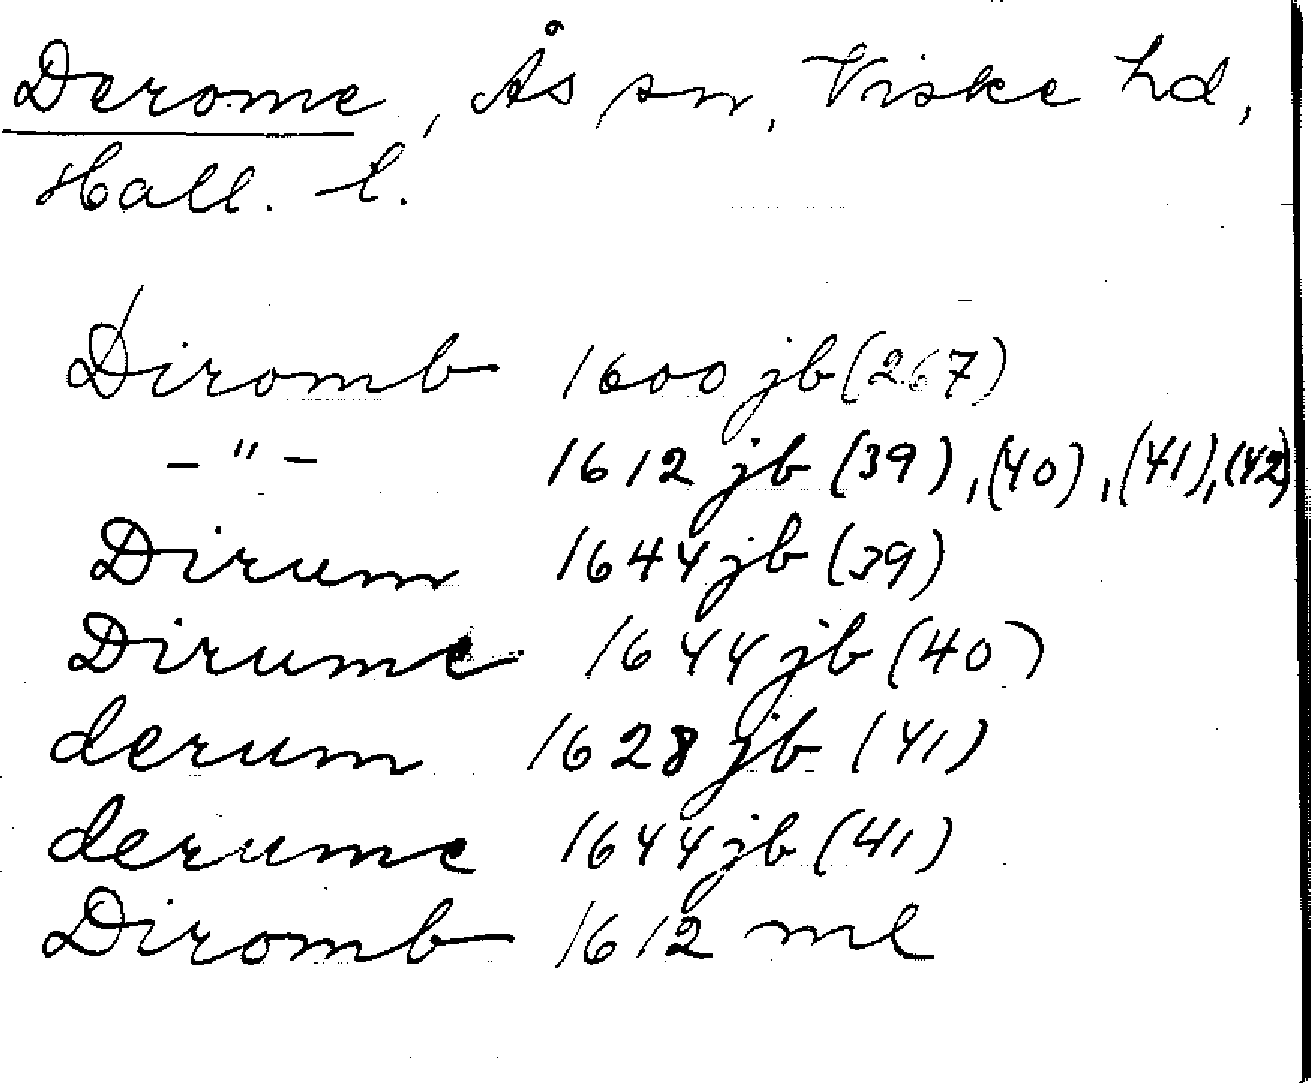 Derome, Ås sn, Viske hd,
Hall. l.
Diromb 1600 jb (267)
– " – 1612 jb (39), (40), (41), (42)
Dirum 1644 jb (39)
Dirume 1644 jb (40)
derum 1628 jb (41)
derume 1644 jb (41)
Diromb 1612 ml